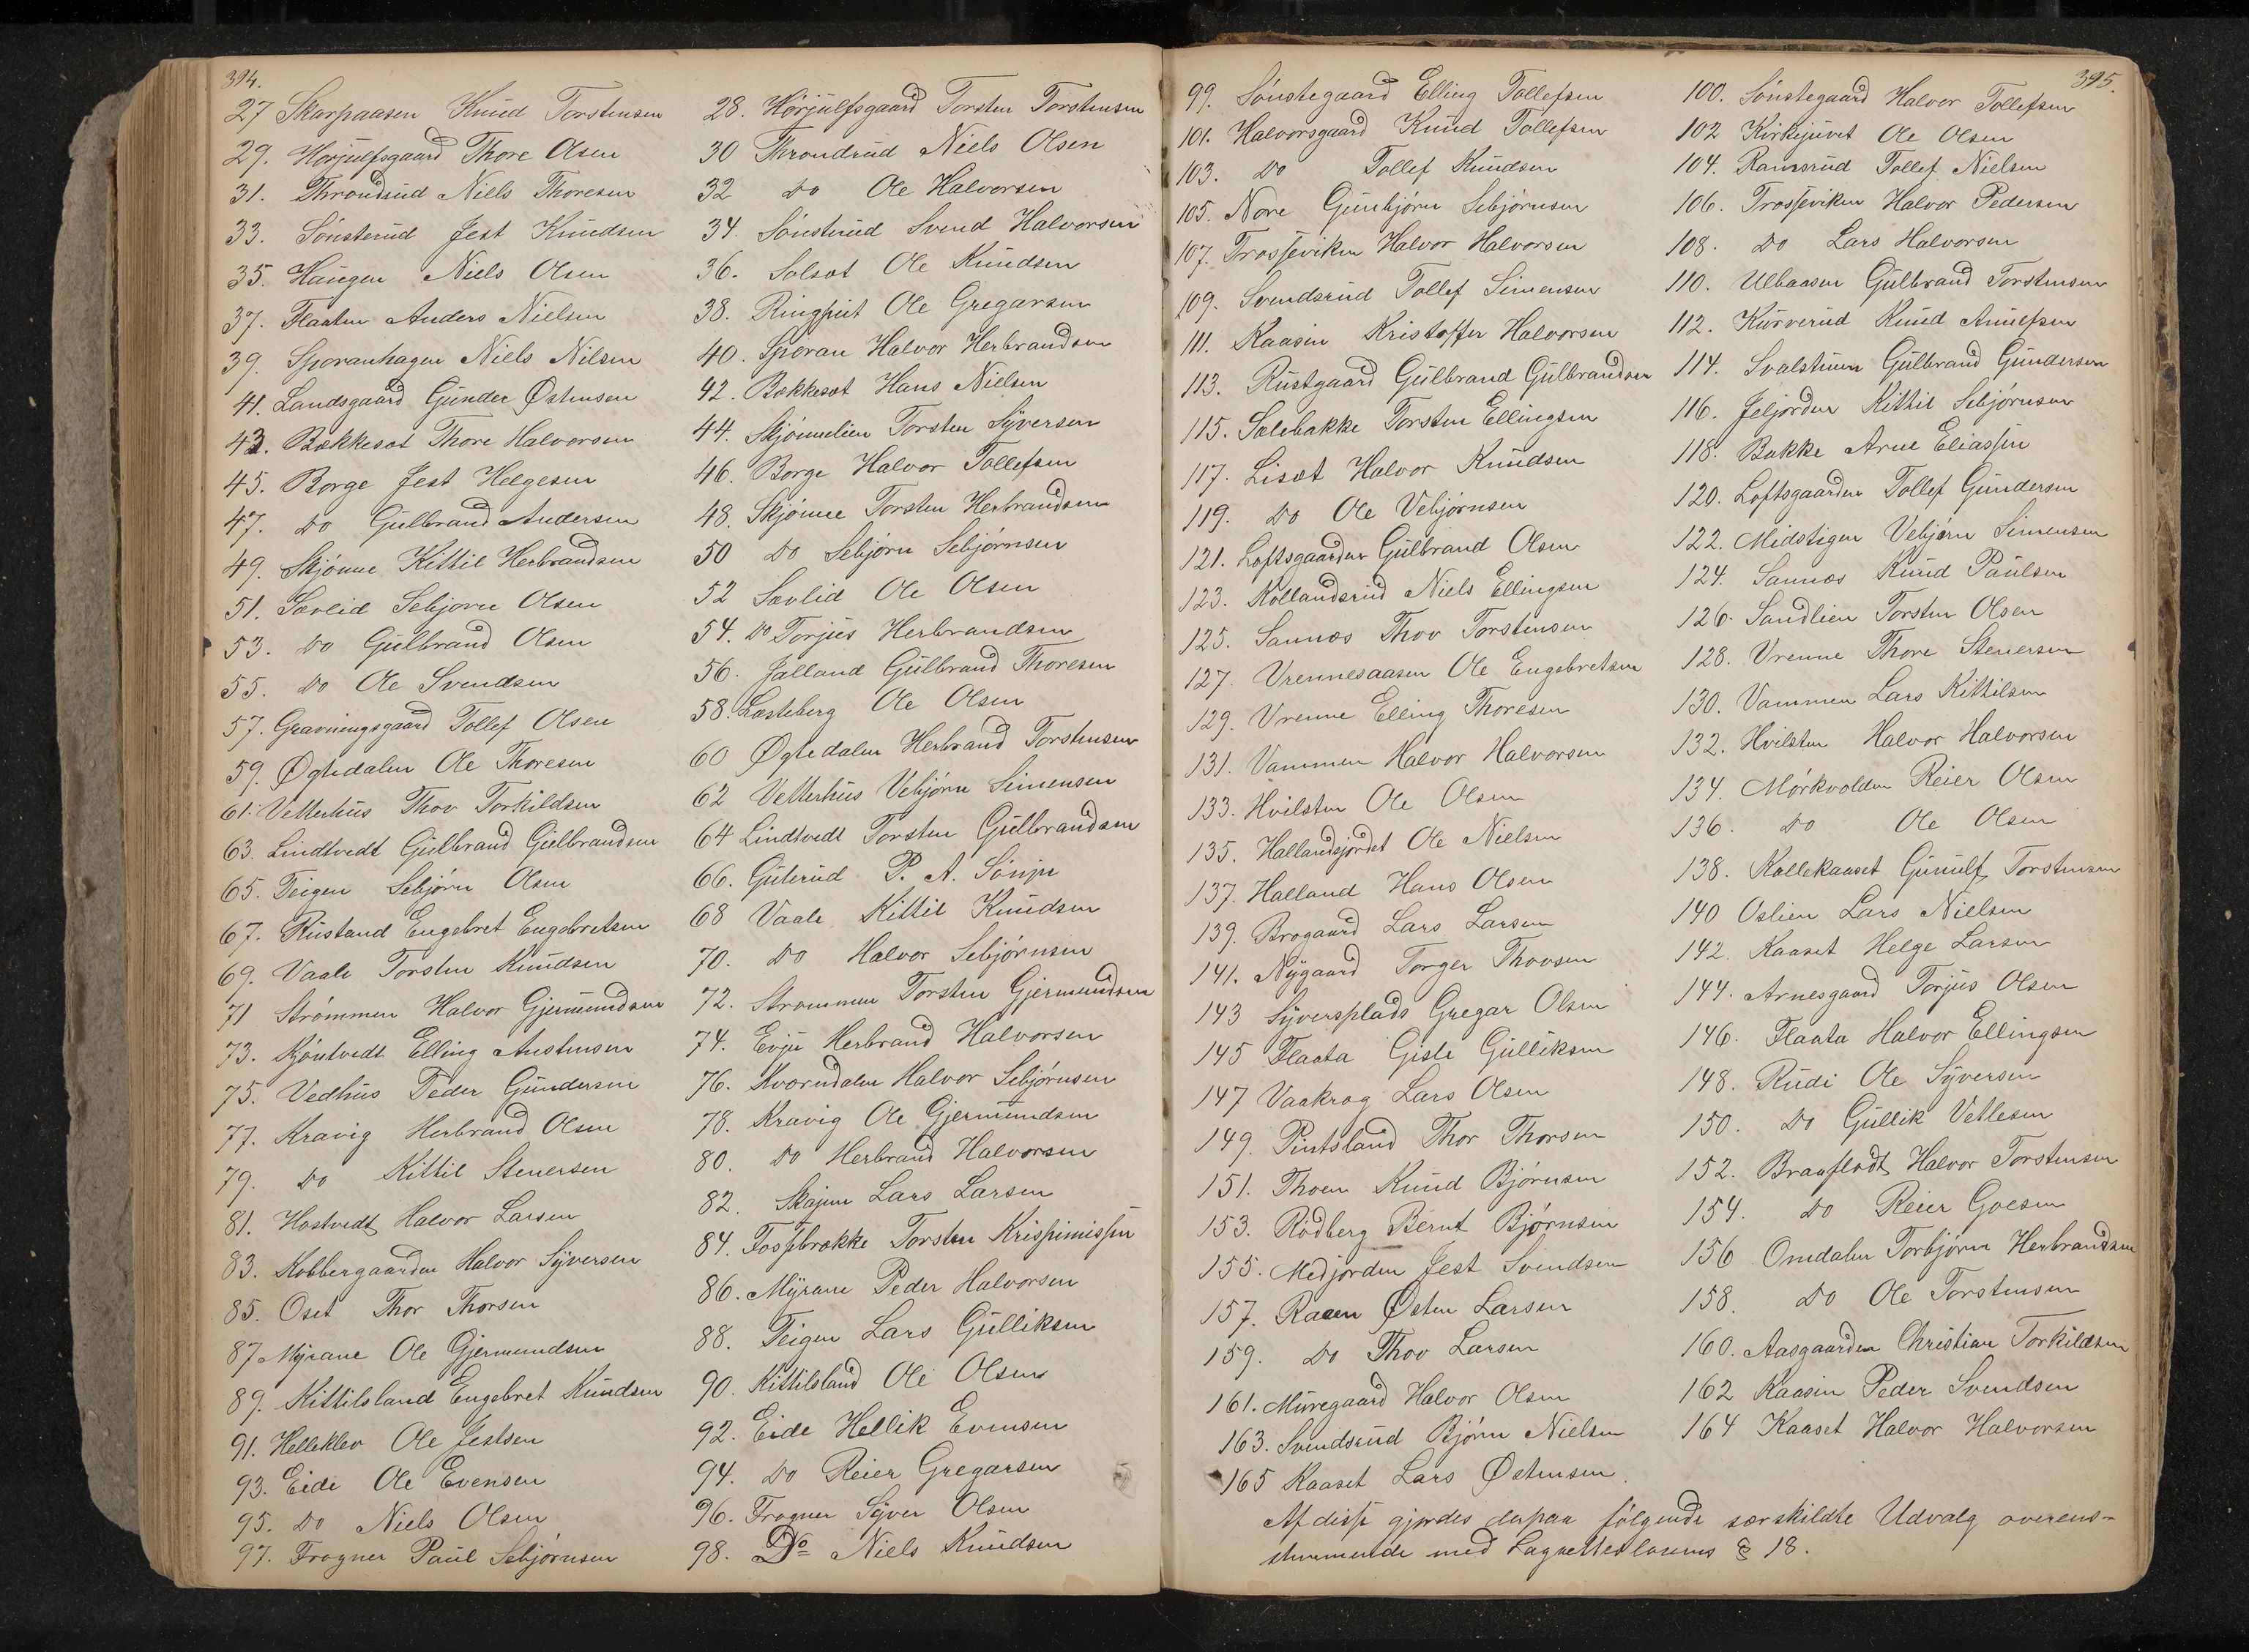 394.
27 Skarpaasen Knud Torstensen
29. Horjulfsgaard Thore Olsen
31. Throndrud Niels Thoresen
33. Sönsterud Jest Knudsen
35. Haugen Niels Olsen
37. Flaaten Anders Nielsen
39. Sporanhagen Niels Nilsen
41. Landsgaard Gunder Østensen
43. Bækkesæt Thore Halvorsen
45. Borge Jest Helgesen
47. Do Gulbrand Andersen
49. Skjönne Kittil Herbrandsen
51. Sævlid Sebjorn Olsen
53. Do Gulbrand Olsen
55. Do Ole Svendsen
57. Gravningsgaard Tollef Olsen
59. Øgtedalen Ole Thoresen
61. Vetterhus Thov Torkildsen
63. Lindtvedt Gulbrand Gulbrandsen
65. Teigen Sebjörn Olsen
67. Rustand Engebret Engebretsen
69. Vaale Torsten Knudsen
71 Strömmen Halvor Gjermundsen
73. Kjöntvedt Elling Austensen
75. Vedhus Peder Gundersen
77. Kravig Herbrand Olsen
79. Do Kittil Stenersen
81. Hostvedt Halvor Larsen
83. Kobbergaarden Halvor Syversen
85. Oset Thor Thorsen
87 Myrane Ole Gjermundsen
89. Kittilsland Engebret Knudsen
91. Helleklev Ole Jestsen
93. Eide Ole Evensen
95. Do Niels Olsen
97. Frogner Paul Sebjörnsen
28. Hörjulfsgaard Torsten Torstensen
30 Throndrud Niels Olsen
32 Do Ole Halvorsen
34. Sönsterud Svend Halvorsen
36. Solsæt Ole Knudsen
38. Ringput Ole Gregarsen
40. Sporan Halvor Herbrandsen
42. Bækkesæt Hans Nielsen
44. Skjönnelien Torsten Syversen
46. Borge Halvor Tollefsen
48. Skjönne Torsten Herbrandsen
50 Do Sebjörn Sebjörnsen
52 Sævlid Ole Olsen
54. Do Torjus Herbrandsen
56. Jalland Gulbrand Thoresen
58. Lœsteberg Ole Olsen
60 Øgtedalen Herbrand Torstensen
62 Vetterhus Vebjörn Simensen
64 Lindtvedt Torsten Gulbrandsen
66. Guterud P. A. Sönju
68 Vaale Kittil Knudsen
70. Do Halvor Sebjörnsen
72. Strommen Torsten Gjermundsen
74. Evju Herbrand Halvorsen
76. Kvorndalen Halvor Sebjörnsen
78. Kravig Ole Gjermundsen
80. Do Herbrand Halvorsen
82. Skajem Lars Larsen
84. Fossebrække Torsten Krispinissen
86. Myrane Peder Halvorsen
88. Teigen Lars Gulliksen
90. Kittilsland Ole Olsen
92. Eide Hellik Evensen
94. Do Reier Gregarsen
96. Frogner Syver Olsen
98. Do Niels Knudsen
395.
99. Sönstegaard Elling Tollefsen
101. Halvorsgaard Knud Tollefsen
103. Do Tollef Knudsen
105. Nore Gunbjörn Sebjörnsen
107. Trosseviken Halvor Halvorsen
109. Svendsrud Tollef Simensen
111. Kaasin Kristoffer Halvorsen
113. Rustgaard Gulbrand Gulbrandsen
115. Solebakke Torsten Ellingsen
117. Lisæt Halvor Knudsen
119. Do Ole Vebjörnsen
121. Loftsgaarden Gulbrand Olsen
123. Kollandsrud Niels Ellingsen
125. Sannæs Thov Torstensen
127. Vrennesaasen Ole Engebretsen
129. Vrenne Elling Thoresen
131. Vammen Halvor Halvorsen
133. Hvilsten Ole Olsen
135. Hallandsjordet Ole Nielsen
137. Halland Hans Olsen
139. Brogaard Lars Larsen
141. Nygaard Torger Thovsen
143 Syversplads Gregar Olsen
145 Flaata Gisle Gulliksen
147 Vaakrag Lars Olsen
149. Pintsland Thor Thorsen
151. Thoen Knud Björnsen
153. Rodberg Bernt Björnsen
155. Medjorden Jest Svendsen
157. Raaen Østen Larsen
159. Do Thov Larsen
161. Muregaard Halvor Olsen
163. Svendsrud Björn Nielsen
165 Kaaset Lars Østensen
100. Sönstegaard Halvor Tollefsen
102 Kirkejuvet Ole Olsen
104. Ramsrud Tollef Nielsen
106. Trosseviken Halvor Pedersen
108. Do Lars Halvorsen
110. Ulbaasen Gulbrand Torstensen
112. Kurverud Knud Anulfsen
114. Svalstuen Gulbrand Gundersen
116. Jeljorden Kittil Sebjörnsen
118. Bakke Arne Eliassen
120. Loftsgaarden Tollef Gundersen
122. Midstigen Vebjörn Simensen
124. Sannæs Knud Paulsen
126. Sandlien Torsten Olsen
128. Vrenne Thore Stenersen
130. Vammen Lars Kittilsen
132. Hvilsten Halvor Halvorsen
134. Mörkvolden Reier Olsen
136. Do Ole Olsen
138. Kollekaaset Gunulf Torstensen
140 Oslien Lars Nielsen
142. Kaaset Helge Larsen
144. Arnesgaard Torjus Olsen
146. Flaata Halvor Ellingsen
148. Rudi Ole Syversen
150. Do Gullik Vetlesen
152. Braaflodt Halvor Torstensen
154. Do Reier Goesen
156 Omdalen Torbjörn Herbrandsen
158. Do Ole Torstensen
160. Aasgaarden Christian Torkildsen
162 Kaasin Peder Svendsen
164 Kaaset Halvor Halvorsen
Af disse gjordes derpaa følgende særskildte Udvalg overens-
stemmende med Lagretteslovens § 18.